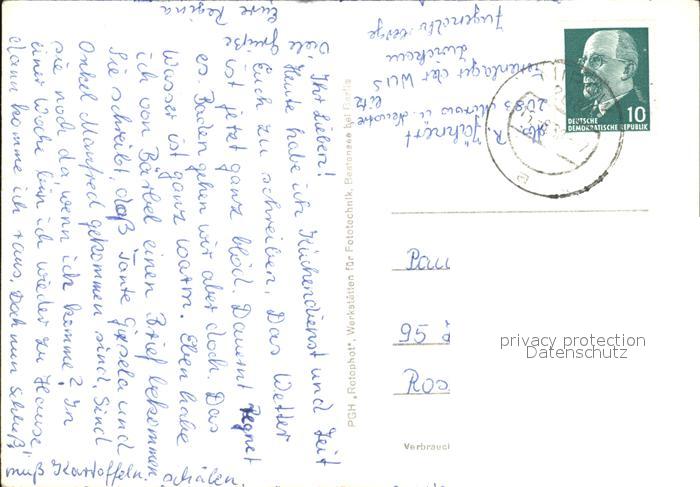 Ihr Lieben!
Heute habe ich Küchendienst und Zeit
Euch zu schreiben. Das Wetter
ist jetzt ganz blöd. Dauernt regnet
es. Baden gehen wir aber doch. Das
Wasser ist ganz warm. Eben habe
ich von Bärbel einen Brief bekommen
Sie schreibt, daß Tante Gisela und
Onkel Manfred gekommen sind. Sind
sie noch da, wenn ich komme? In
einer Woche bin ich wieder zu Hause
dann komme ich raus, Doch nun schluß!
muß Kartoffeln schälen.
Viele Grüße
Eure Regina
PGH „Rotophot", Werkstätten für Fototechnik, Bestensee bei Berlin
Abs. R.
2083 Mirow ü. Neustrelitz
Ferienlager der WUS
Zwickau
10
DEUTSCHE
DEMOKRATISCHE REPUBLIK
Pau
95
Ros
privacy protection
Datenschutz
Verbrauc